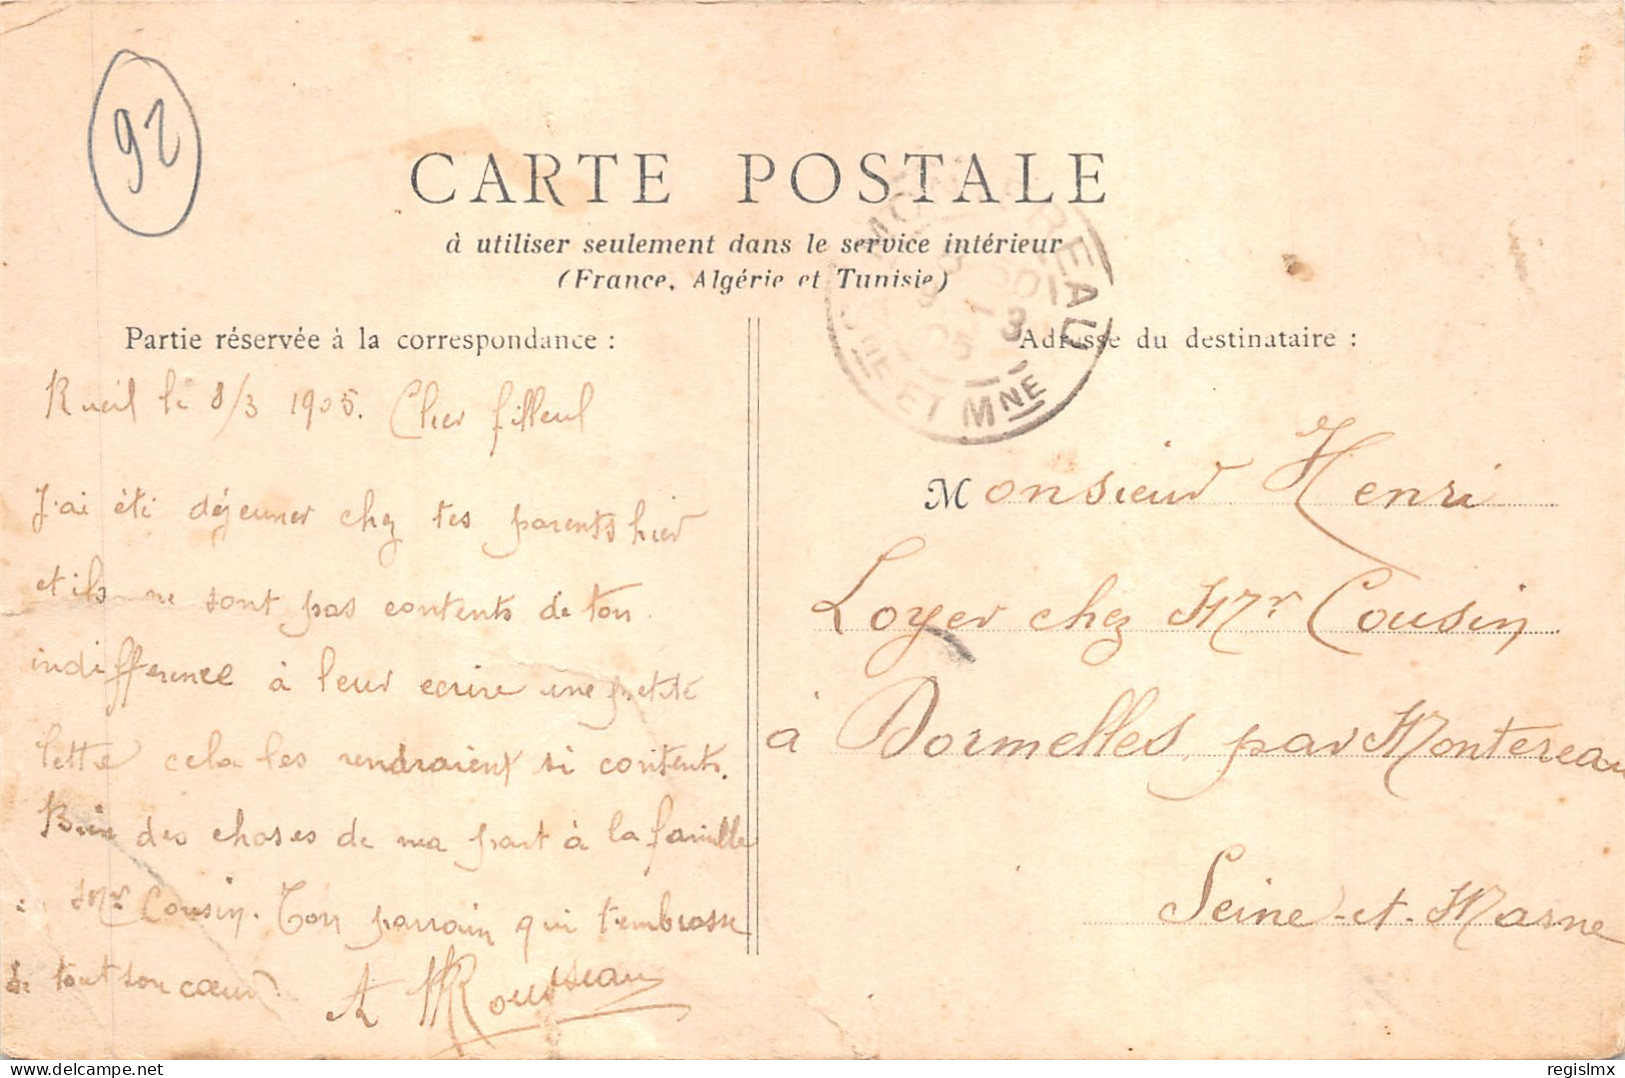 92
CARTE POSTALE
à utiliser seulement dans le service intérieur
(France, Algérie et Tunisie)
Partie réservée à la correspondance :
Rueil le 8/3 1905. Cher filleul
J'ai été déjeuner chez tes parents hier
et ils ne sont pas contents de ton
indifference à leur ecrire une petite
lettre cela les rendraient si contents.
Bien des choses de ma part à la famille
Mr Cousin. Ton parrain qui t'embrasse
de tout son cœur. A Rousseau
MONTEREAU
9 -3
05
SNE ET MNE
Adresse du destinataire :
Monsieur Henri
Loyer chez Mr Cousin
à Dormelles par Montereau
Seine-et-Marne
delcampe.net
regislmx